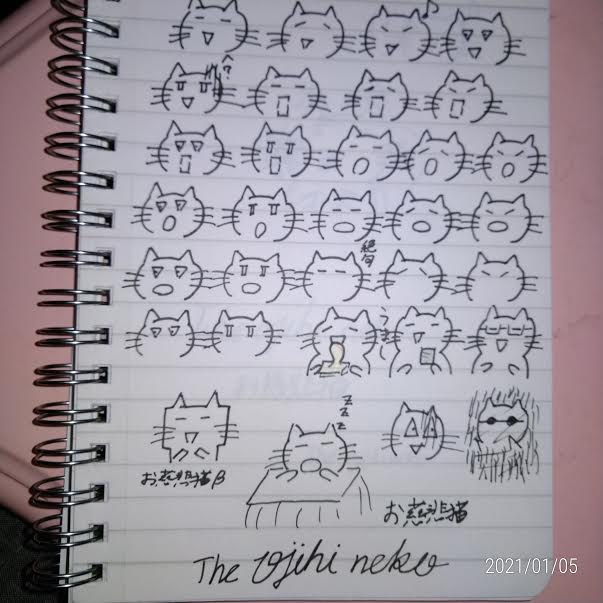 絶句
うまし
z
z
z
お慈悲猫β
お慈悲猫
The Ojihi neko
2021/01/05